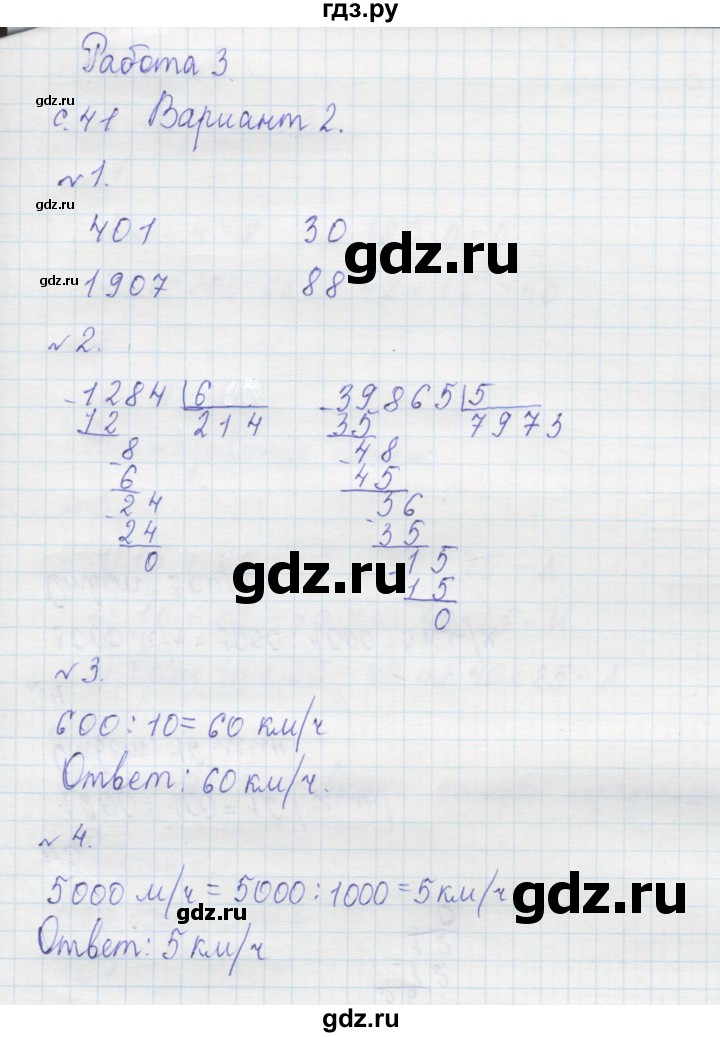 гдз.ру
Работа 3.
gdz.ru
с. 41 Вариант 2.
№1.
gdz.ru
401 30
gdz.ru
gdz.ru
1907 88
№2.
-1284 6 -39865 5
12 214 35 7973
-8 -48
6 45
-24 -56
24 35
0 -15
gdz.ru
15
0
№3.
600:10=60 км/ч
gdz.ru
Ответ: 60 км/ч.
№4.
5000 м/ч = 5000:1000=5км/ч
gdz.ru
gdz.ru
Ответ: 5 км/ч
gdz.ru